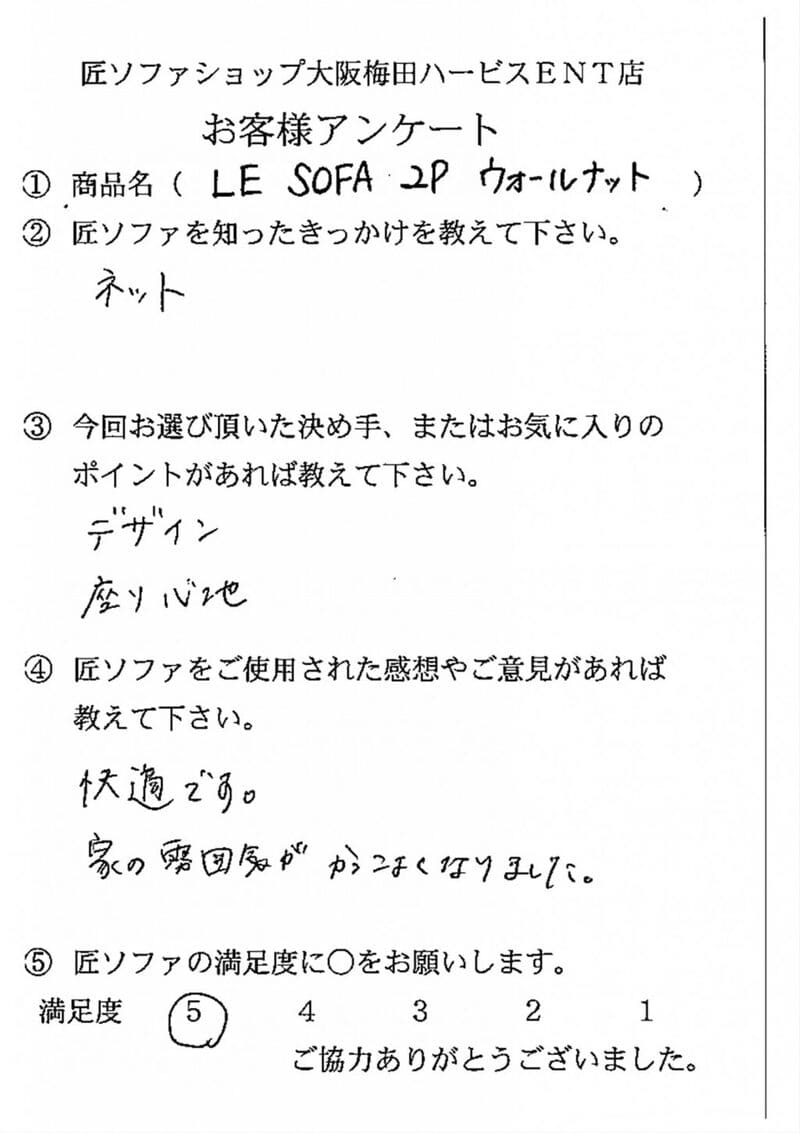 匠ソファショップ大阪梅田ハービスＥＮＴ店
お客様アンケート
① 商品名（ LE SOFA 2P ウォールナット ）
② 匠ソファを知ったきっかけを教えて下さい。
ネット
③ 今回お選び頂いた決め手、またはお気に入りの
ポイントがあれば教えて下さい。
デザイン
座り心地
④ 匠ソファをご使用された感想やご意見があれば
教えて下さい。
快適です。
家の雰囲気がかっこよくなりました。
⑤ 匠ソファの満足度に○をお願いします。
満足度 5 4 3 2 1
ご協力ありがとうございました。